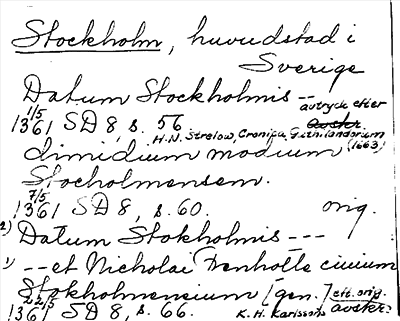 Stockholm, huvudstad i
Sverige
Datum Stockholmis -- avtryck efter
1361 1/5 SD 8, s. 56 avskr.
H.N. Strelow, Cronica Guthilandorum (1633)
dimidium modium
Stocholmensem.
1361 7/5 SD 8, s. 60. orig.
2) Datum Stokholmis ---
1) -- et Nicholai Denholte ciuium
Stokholmensium [gen.] eft. orig.
1361 22/5 SD 8, s. 66. K. H. Karlssons avskr.